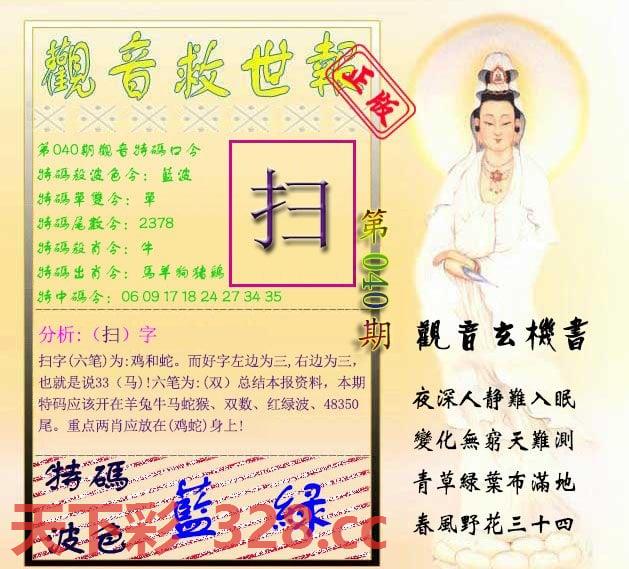 觀音救世報
正版
第040期觀音特碼口令
特碼殺波色令：藍波
特碼單雙令：單
特碼尾數令：2378
特碼殺肖令：牛
特碼出肖令：馬羊狗猪鷄
特中碼令：06 09 17 18 24 27 34 35
扫
第040期
分析:（扫）字
扫字(六笔)为:鸡和蛇。而好字左边为三,右边为三，
也就是说33（马)!六笔为:(双）总结本报资料，本期
特码应该开在羊兔牛马蛇猴、双数、红绿波、48350
尾。重点两肖应放在(鸡蛇)身上!
特碼
波色
藍 綠
天下彩 328.cc
觀音玄機書
夜深人静難入眠
變化無窮天難測
青草綠葉布滿地
春風野花三十四